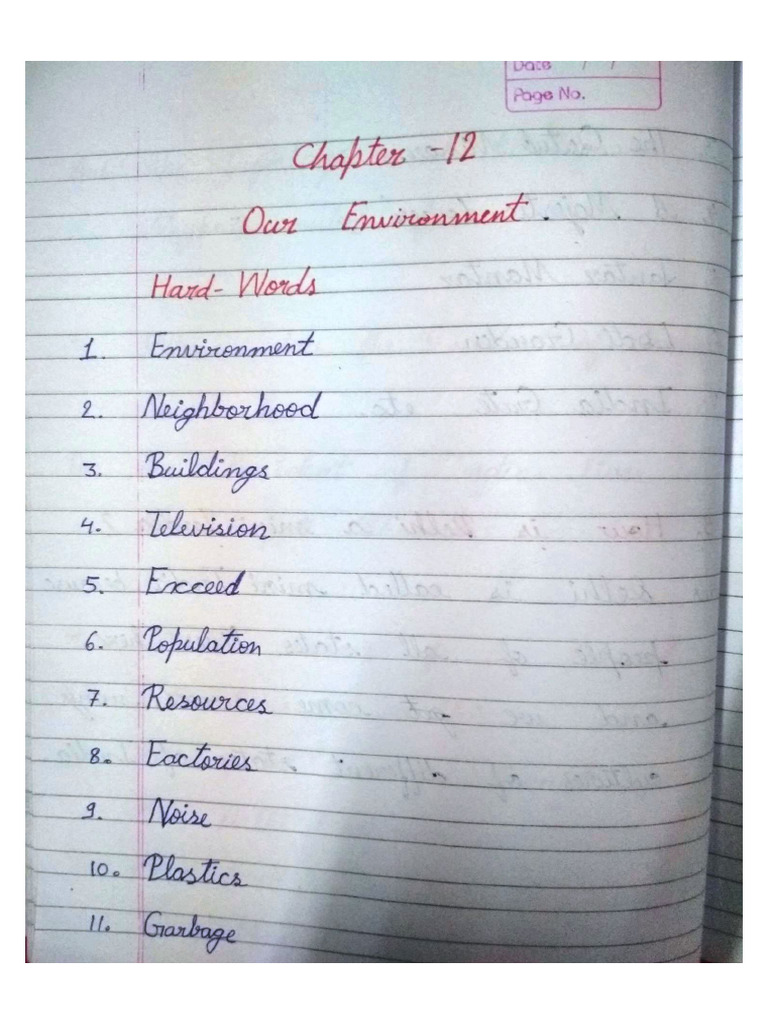 Date / /
Page No.
Chapter -12
Our Environment.
Hard-Words
1. Environment
2. Neighborhood
3. Buildings
4. Television
5. Exceed
6. Population
7. Resources
8. Factories
9. Noise
10. Plastics
11. Garbage